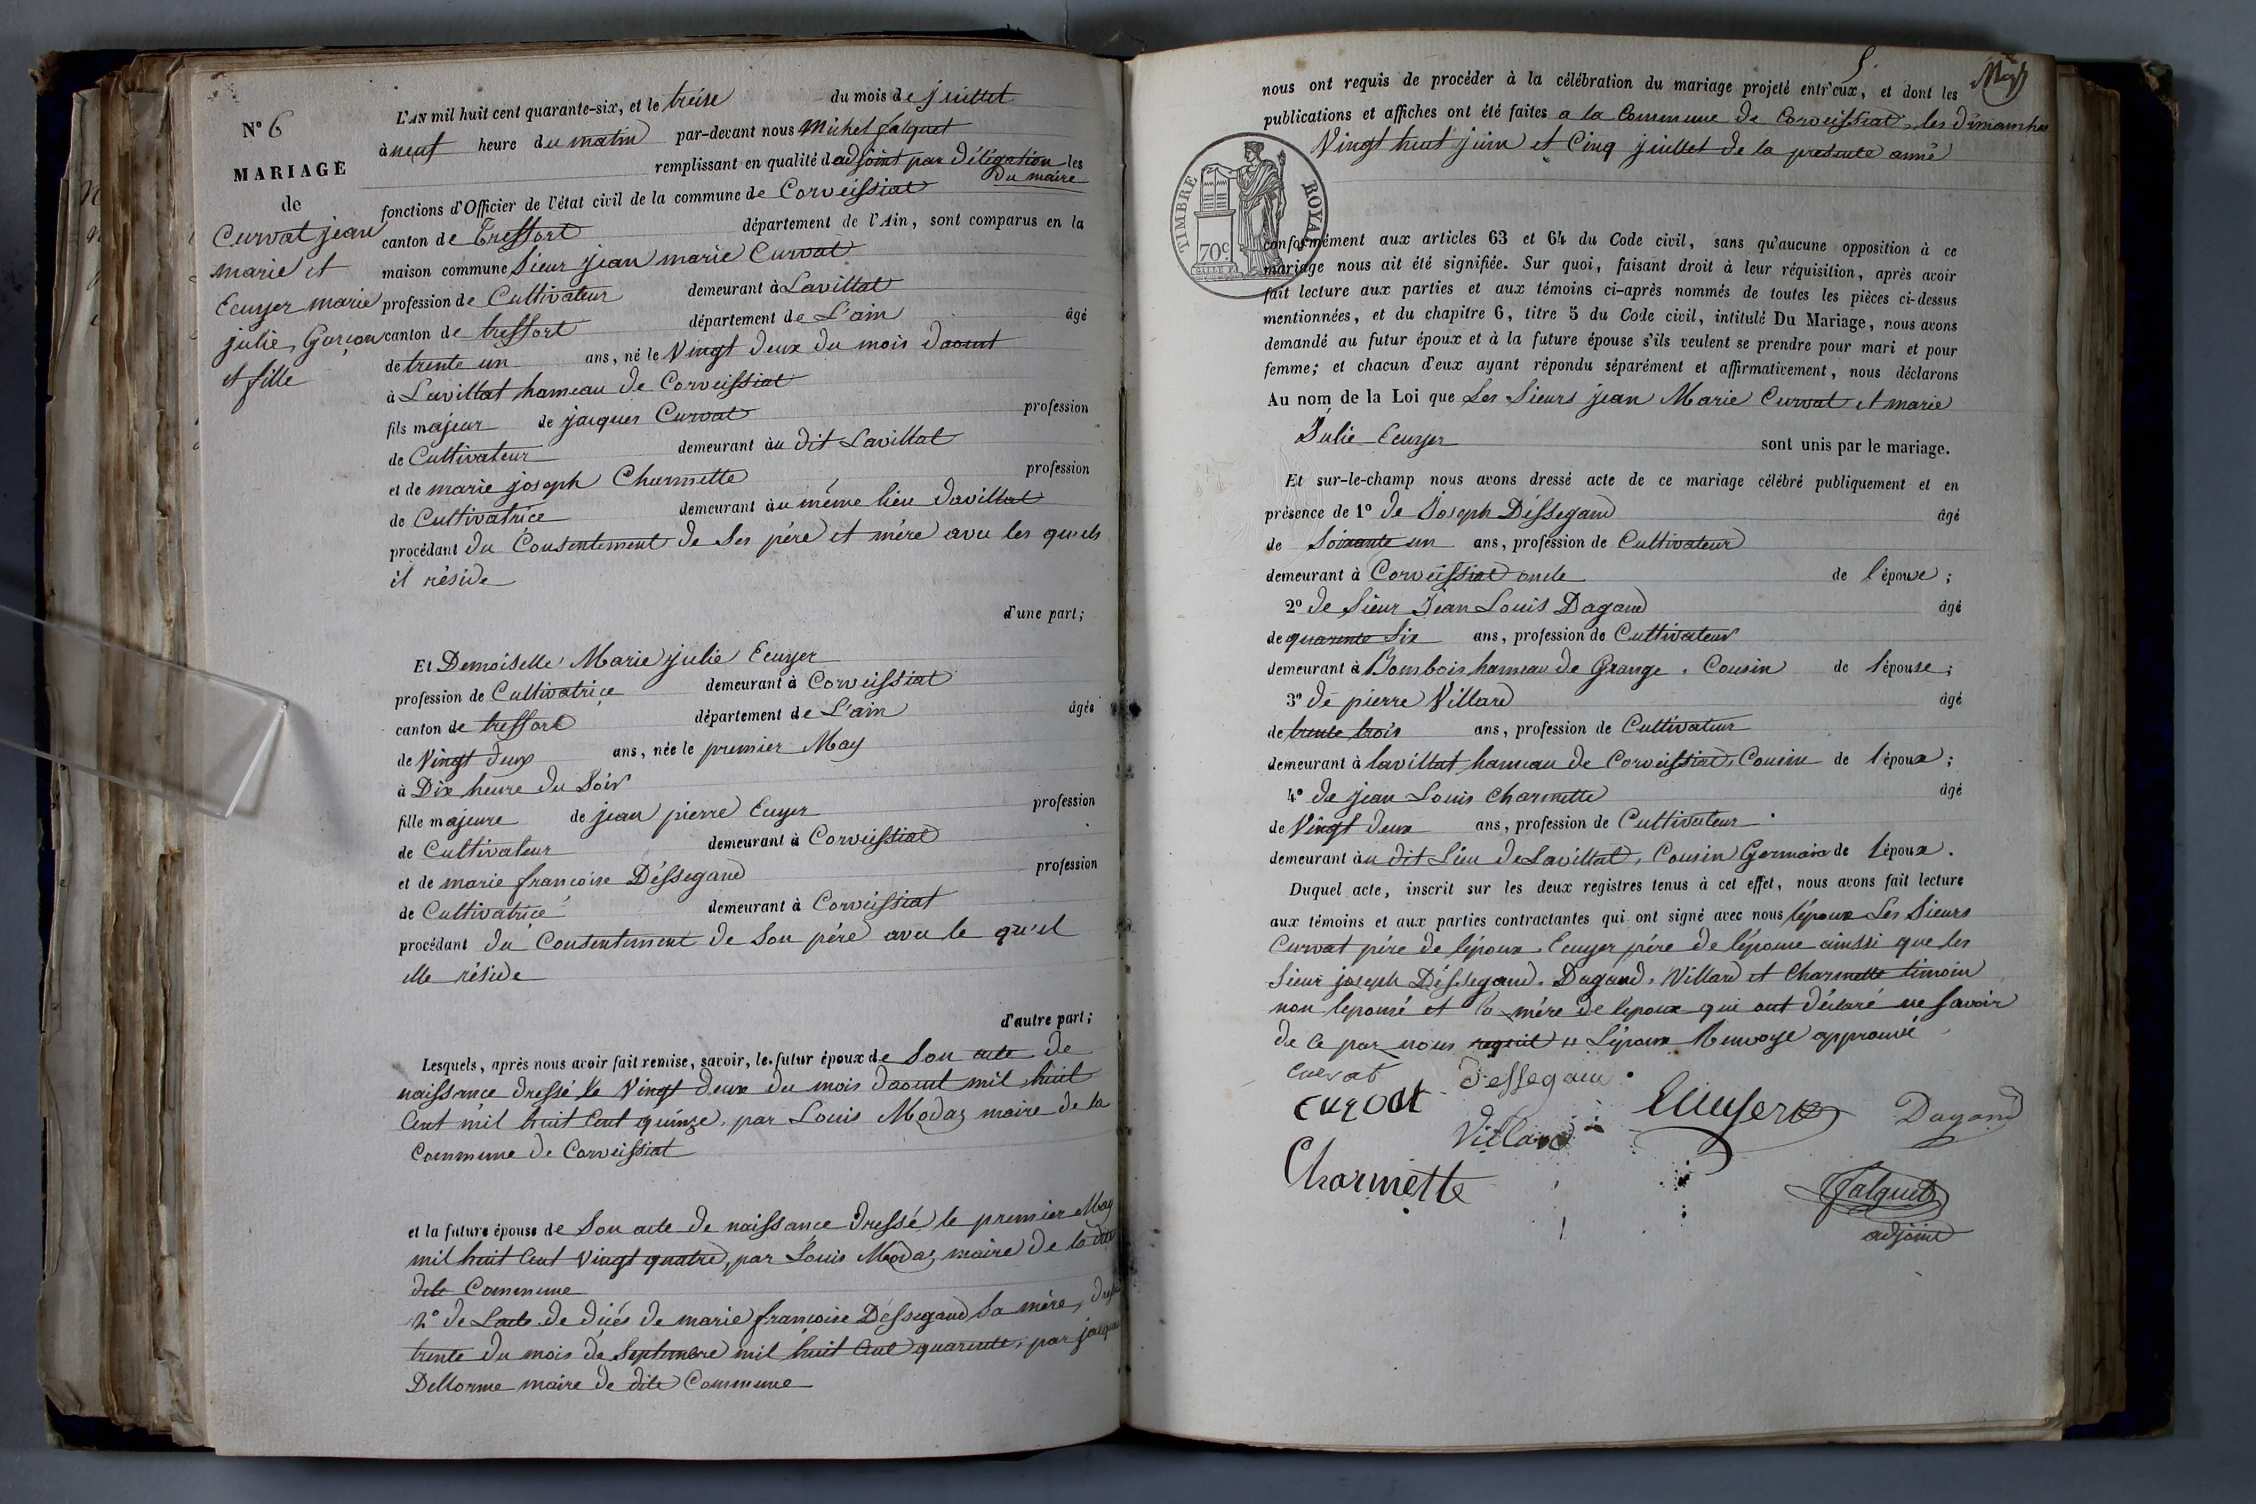 N° 6
MARIAGE
de
Curvat jean
marie et
Ecuyer marie
julie, Garçon
et fille
L'AN mil huit cent quarante-six, et le treise du mois de juillet
à neuf heure du matin par-devant nous Michel falquet
remplissant en qualité d'adjoint par Déligation les
du maire
fonctions d'Officier de l'état civil de la commune de Corveissiat
canton de Treffort département de l'Ain, sont comparus en la
maison commune Sieur jean marie Curvat
profession de Cultivateur demeurant à Lavillat
canton de treffort département de L'ain âgé
de trente un ans, né le Vingt deux du mois daout
à Lavillat hameau de Corveissiat
fils majeur de jacques Curvat profession
de Cultivateur demeurant au dit Lavillat
et de marie joseph Charmette profession
de Cultivatrice demeurant au même lieu Davillat
procédant du Consentement de Ses père et mère avec les quels
il réside
d'une part;
Et Demoiselle Marie julie Ecuyer
profession de Cultivatriçe demeurant à Corveissiat
canton de treffort département de L'ain âgée
de Vingt deux ans, née le premier May
à Dix heure du Soir
fille majeure de jean pierre Ecuyer profession
de Cultivateur demeurant à Corveissiat
et de marie françoise Déssegand profession
de Cultivatrice demeurant à Corveissiat
procédant du Consentement de Son père avec le qu'el
elle réside
d'autre part;
Lesquels, après nous avoir fait remise, savoir, le futur époux de Son acte de
naissance dressé le Vingt deux du mois daout mil huit
Cent mil huit Cent quinze, par Louis Modaz maire de la
Commune de Corveissiat
et la future épouse de Son acte de naissance dressé le premier May
mil huit Cent Vingt quatre, par Louis Modaz maire de la dite
dite Commune
2° de Lacte de diés de marie françoise Déssegand Sa mère,
trente du mois de Septembre mil huit Cent quarante, par
Dellorme maire de dite Commune
5.
nous ont requis de procéder à la célébration du mariage projeté entr'eux, et dont les
publications et affiches ont été faites a la Commune de Corveissiat, les dimanches
Vingt huit juin et Cinq juillet de la presente anné
TIMBRE ROYAL
70c
conformément aux articles 63 et 64 du Code civil, sans qu'aucune opposition à ce
mariage nous ait été signifiée. Sur quoi, faisant droit à leur réquisition, après avoir
fait lecture aux parties et aux témoins ci-après nommés de toutes les pièces ci-dessus
mentionnées, et du chapitre 6, titre 5 du Code civil, intitulé Du Mariage, nous avons
demandé au futur époux et à la future épouse s'ils veulent se prendre pour mari et pour
femme; et chacun d'eux ayant répondu séparément et affirmativement, nous déclarons
Au nom de la Loi que Les Sieurs jean Marie Curvat et marie
Julie Ecuyer sont unis par le mariage.
Et sur-le-champ nous avons dressé acte de ce mariage célébré publiquement et en
présence de 1° de Joseph Déssegand âgé
de Soixante un ans, profession de Cultivateur
demeurant à Corveissiat oncle de l'épouse;
2° de Sieur Jean Louis Dagand âgé
de quarente Six ans, profession de Cultivateur
demeurant à Bombois hameau de Grange. Cousin de lépouse;
3° de pierre Villard âgé
de trente trois ans, profession de Cultivateur
demeurant à lavillat hameau de Corveissiat, Cousin de lépoux;
4° de jean Louis Charmette âgé
de Vingt deux ans, profession de Cultivateur
demeurant au dit Lieu de Lavillat, Cousin Germain de lépoux.
Duquel acte, inscrit sur les deux registres tenus à cet effet, nous avons fait lecture
aux témoins et aux parties contractantes qui ont signé avec nous lépoux Les Sieurs
Curvat père de lépoux, Ecuyer père de lépouse ainsi que les
Sieur joseph Déssegand. Dagand, Villard et Charmette timoin
non lepousé et la mère de lepoux qui ont déclaré ne Savoir
de Ce par nous requit Lépoux Renvoye approuvé
Curvat Dessegand
curvat Ecuyer Dagand
Villard
Charmette
Falquet
adjoint